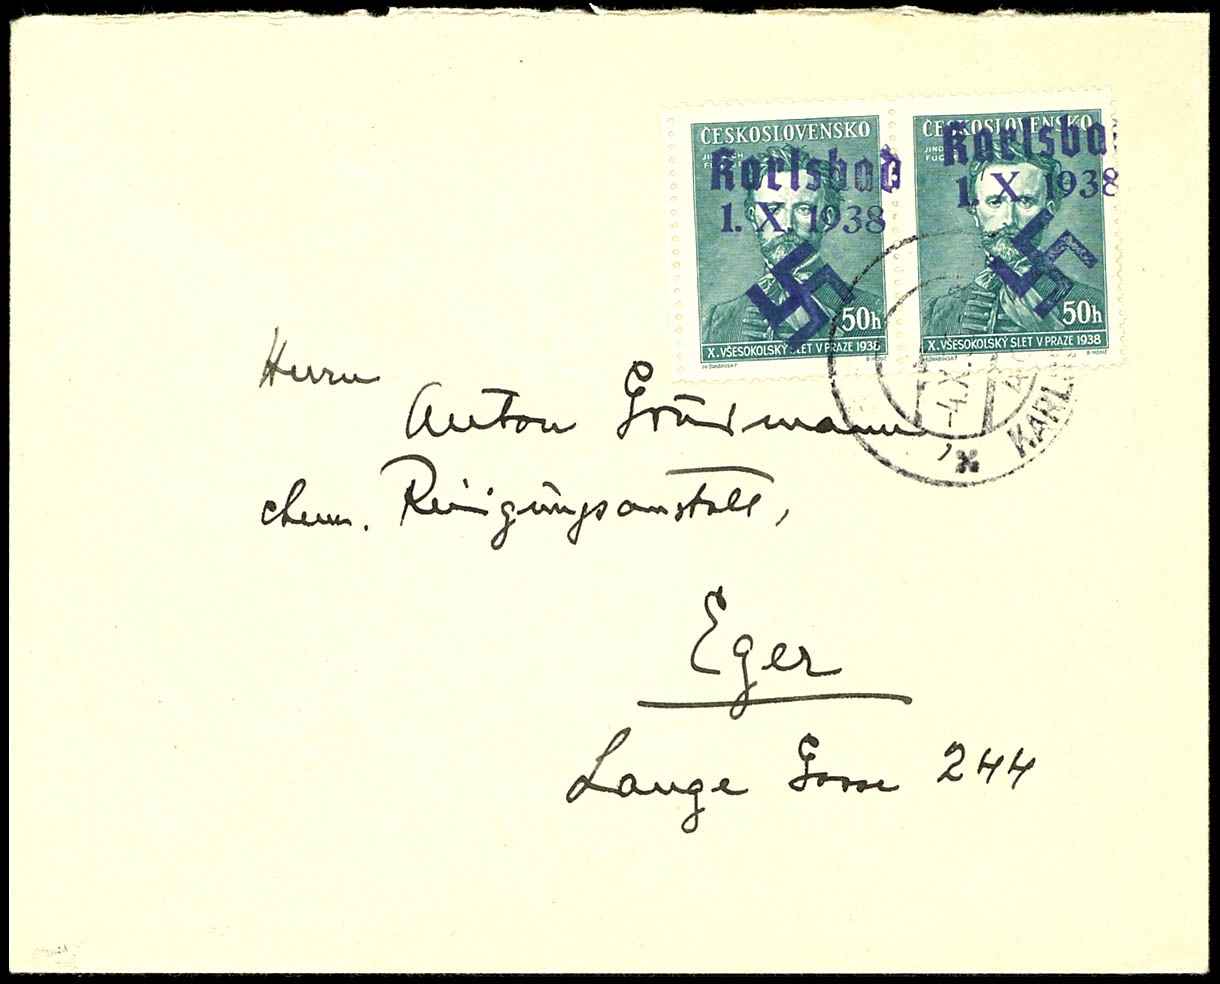 ČESKOSLOVENSKO
JINDŘICH
FÜGNER
Karlsbad
1. X. 1938
50h
X. VŠESOKOLSKÝ SLET V PRAZE 1938
ČESKOSLOVENSKO
JIND
FÜG
Karlsba
1. X. 1938
50h
X. VŠESOKOLSKÝ SLET V PRAZE 1938
-4.X.
KARL
Herrn
Anton
chem. Reinigungsanstalt,
Eger
Lange Gasse 244